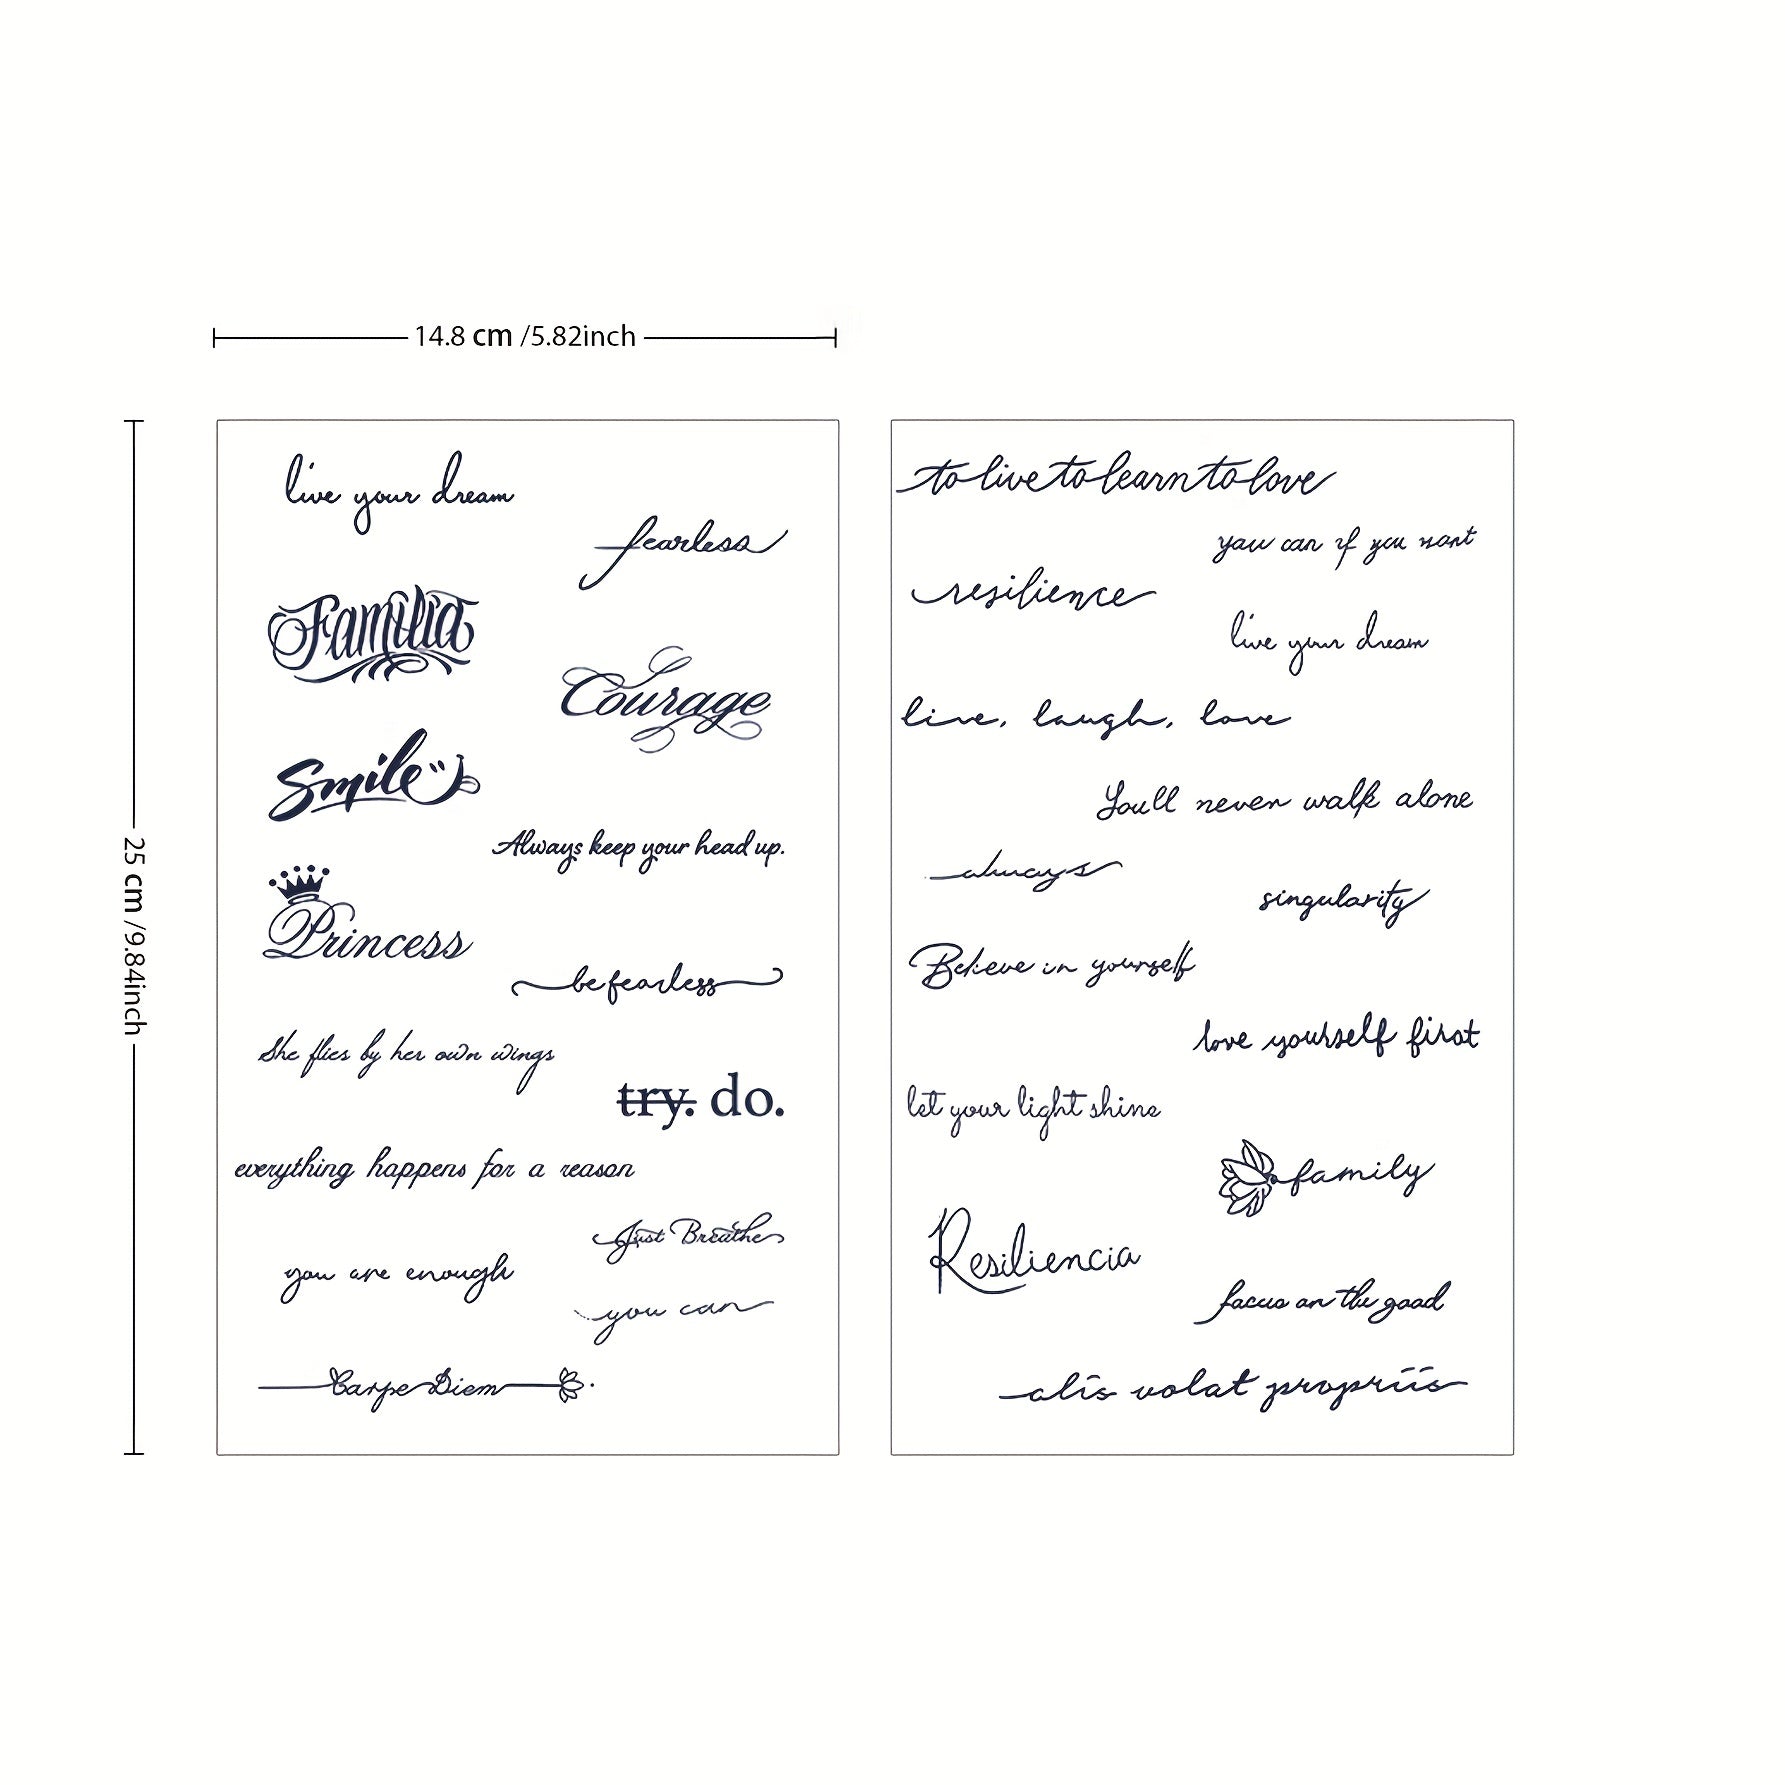 14.8 cm /5.82inch
25 cm /9.84inch
live your dream
fearless
Familia
Courage
Smile
Always keep your head up.
Princess
be fearless
She flies by her own wings
try. do.
everything happens for a reason
Just Breathe
you are enough
you can
Carpe Diem
to live to learn to love
you can if you want
resilience
live your dream
live, laugh, love
You'll never walk alone
always
singularity
Believe in yourself
love yourself first
let your light shine
family
Resiliencia
focus on the good
alis volat propriis